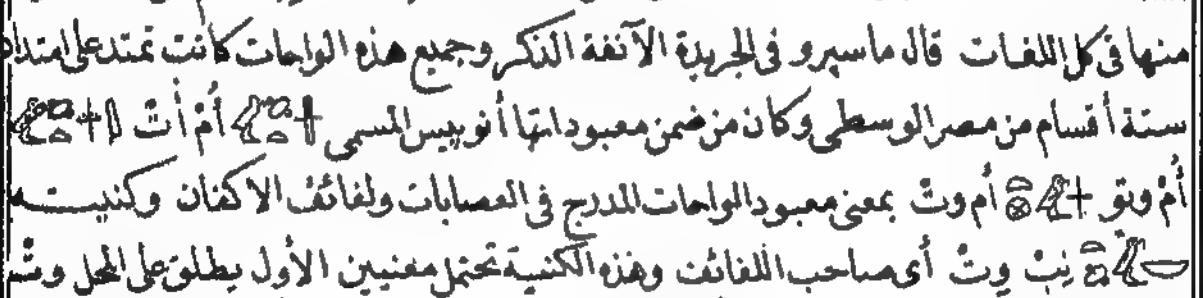 منها فى كل اللغات قال ماسپرو فى الجريدة الآنفة الذكر وجميع هذه الواحات كانت تمتد على امتداد
ستة أقسام من مصر الوسطى وكان من ضمن معبوداتها أنوبيس المسمى أُمْ أُتْ
أُمْ وتو أم وتْ بمعنى معبود الواحات المدرج فى العصابات ولفائف الاكفان وكنيتـــه
نِبْ وِتْ أى صاحب اللفائف وهذه الكنية تحتمل معنيين الأول يطلق على المحل وتْ